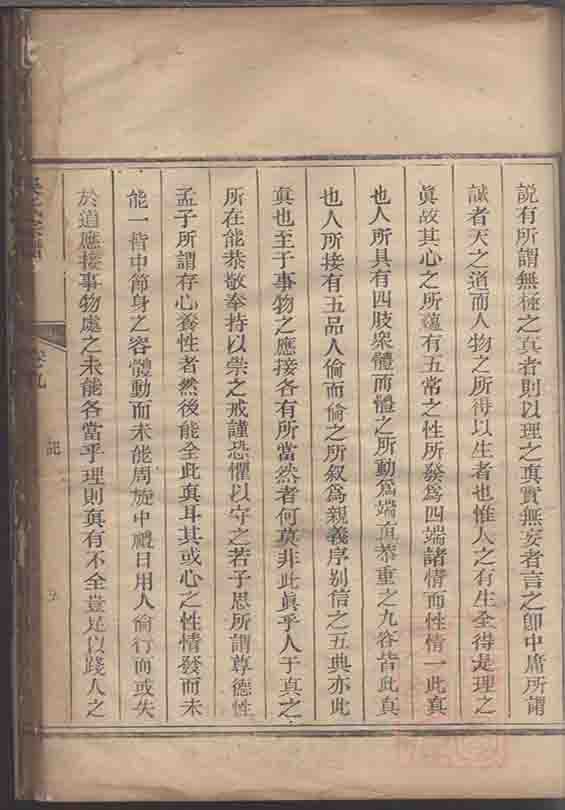 說有所謂無極之真者則以理之真實無妄者言之卽中庸所謂
誠者天之道而人物之所得以生者也惟人之有生全得是理之
眞故其心之所蘊有五常之性所發爲四端諸情而性情一此真
也人所具有四肢衆體而體之所動爲端直恭重之九容皆此真
也人所接有五品人倫而倫之所叙爲親義序别信之五典亦此
真也至于事物之應接各有所當然者何莫非此眞乎人于真之
所在能恭敬奉持以崇之戒謹恐懼以守之若子思所謂尊德性
孟子所謂存心養性者然後能全此真耳其或心之性情發而未
能一皆中節身之容體動而未能周旋中禮日用人倫行而或失
於道應接事物處之未能各當乎理則真有不全豈足以踐人之
卷九
記